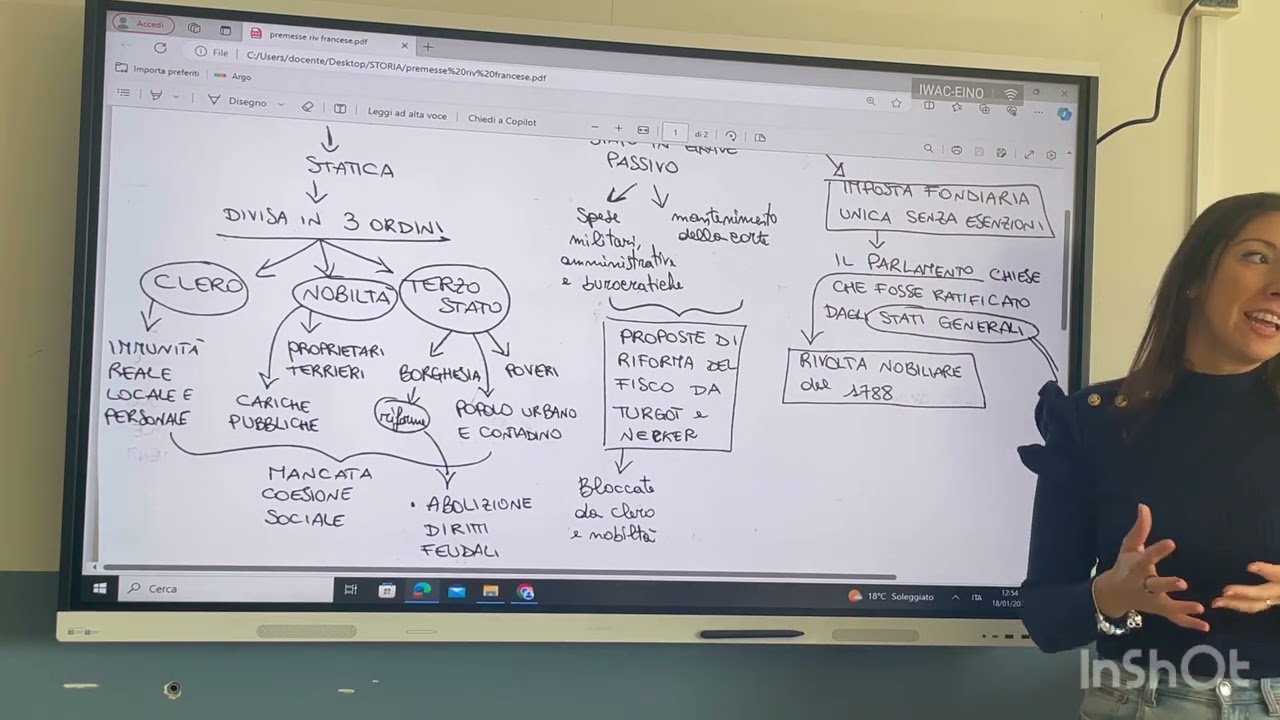 Accedi
premesse riv francese.pdf
File
C:/Users/docente/Desktop/STORIA/premesse%20riv%20francese.pdf
IWAC-EINO
Importa preferiti
Argo
Disegno
Leggi ad alta voce
Chiedi a Copilot
1
di 2
STATICA
DIVISA IN 3 ORDINI
CLERO
NOBILTÀ
TERZO
STATO
IMMUNITÀ
REALE
LOCALE E
PERSONALE
PROPRIETARI
TERRIERI
CARICHE
PUBBLICHE
BORGHESIA
POVERI
riforme
POPOLO URBANO
E CONTADINO
MANCATA
COESIONE
SOCIALE
• ABOLIZIONE
DIRITTI
FEUDALI
STATO IN GRAVE
PASSIVO
Spese
militari,
amministrative
e burocratiche
mantenimento
della corte
PROPOSTE DI
RIFORMA DEL
FISCO DA
TURGOT e
NECKER
Bloccate
da clero
e nobiltà
IMPOSTA FONDIARIA
UNICA SENZA ESENZIONI
IL PARLAMENTO CHIESE
CHE FOSSE RATIFICATO
DAGLI STATI GENERALI
RIVOLTA NOBILIARE
del 1788
Cerca
18°C Soleggiato
ITA
12:54
18/01/20
InShOt